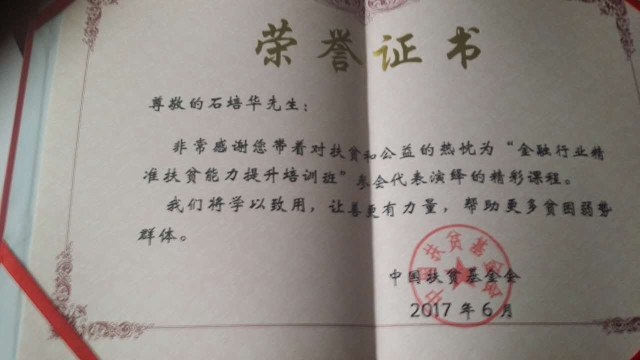 荣誉证书
尊敬的石培华先生：
非常感谢您带着对扶贫和公益的热忱为“金融行业精
准扶贫能力提升培训班”参会代表演绎的精彩课程。
我们将学以致用，让善更有力量，帮助更多贫困弱势
群体。
中国扶贫基金会
2017 年 6 月